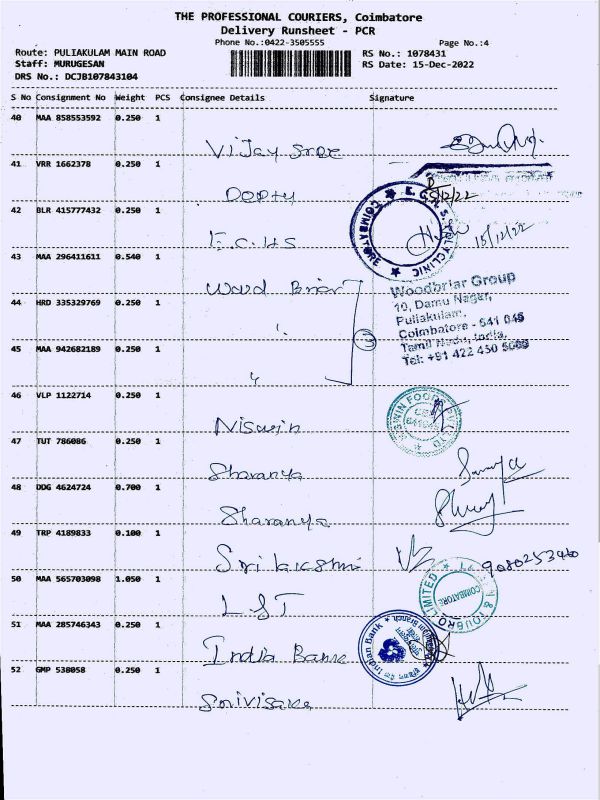 THE PROFESSIONAL COURIERS, Coimbatore
Delivery Runsheet - PCR
Phone No.:0422-3505555
Page No.:4
Route: PULIAKULAM MAIN ROAD
RS No.: 1078431
Staff: MURUGESAN
RS Date: 15-Dec-2022
DRS No.: DCJB107843104
S No Consignment No Weight PCS Consignee Details Signature
40 MAA 858553592 0.250 1
Vijay Sree
41 VRR 1662378 0.250 1
15/12/22
42 BLR 415777432 0.250 1
E.C.H.S
E.C.H.S. POLYCLINIC
COIMBATORE
15/12/22
43 MAA 296411611 0.540 1
Ward Brier
Woodbriar Group
10, Damu Nagar,
Puliakulam,
Coimbatore - 641 045
Tamil Nadu, India.
Tel: +91 422 450 5089
44 HRD 335329769 0.250 1
"
3
45 MAA 942682189 0.250 1
"
46 VLP 1122714 0.250 1
Niswin
NISWIN FOODS PVT LTD
47 TUT 786086 0.250 1
Sharanya
48 DDG 4624724 0.700 1
Sharanya
49 TRP 4189833 0.100 1
Sri lakshmi
9080253460
50 MAA 565703098 1.050 1
L&T
LARSEN & TOUBRO LIMITED
COIMBATORE
51 MAA 285746343 0.250 1
India Bank
Indian Bank
52 GMP 538058 0.250 1